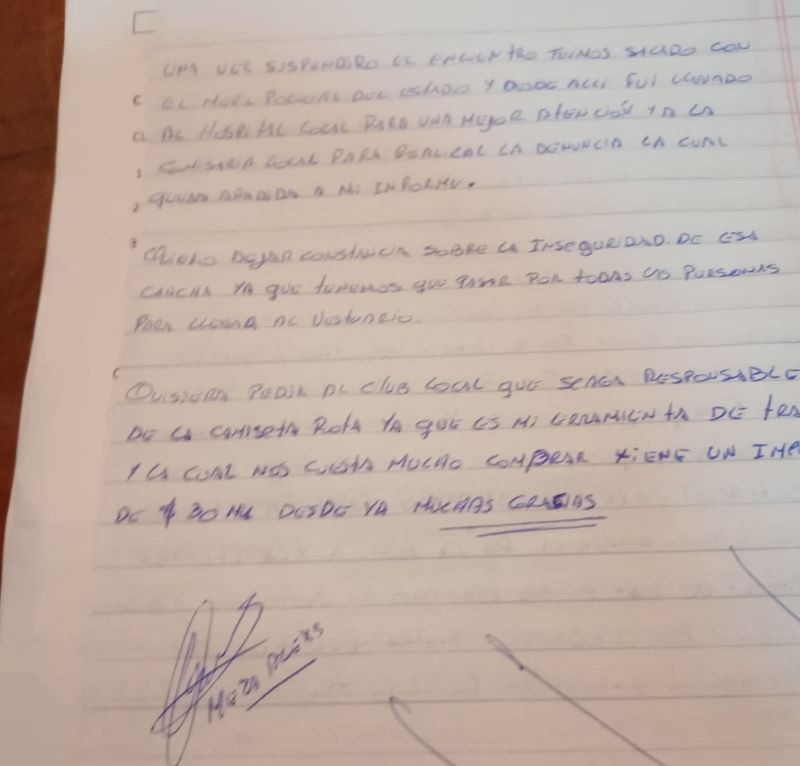 UNA VEZ SUSPENDIDO EL ENCUENTRO FUIMOS SACADO CON
EL MOVIL POLICIAL DEL ESTADIO Y DESDE ALLI FUI LLEVADO
AL HOSPITAL LOCAL PARA UNA MEJOR ATENCIÓN Y A LA
COMISARIA LOCAL PARA REALIZAL LA DENUNCIA LA CUAL
QUEDA AÑADIDA A MI INFORME.
QUIERO DEJAR CONSTANCIA SOBRE LA INSEGURIDAD. DE ESA
CANCHA YA QUE TENEMOS QUE PASAR POR TODAS LAS PERSONAS
PARA LLEGAR AL VESTUARIO.
QUISIERA PEDIR AL CLUB LOCAL QUE SE HAGA RESPONSABLE
DE LA CAMISETA ROTA YA QUE ES MI ERRAMIENTA DE TRA
Y LA CUAL NOS CUESTA MUCHO COMPRAR TIENE UN IMP
DE $ 30 MIL DESDE YA MUCHAS GRACIAS
MEZA ALEXIS